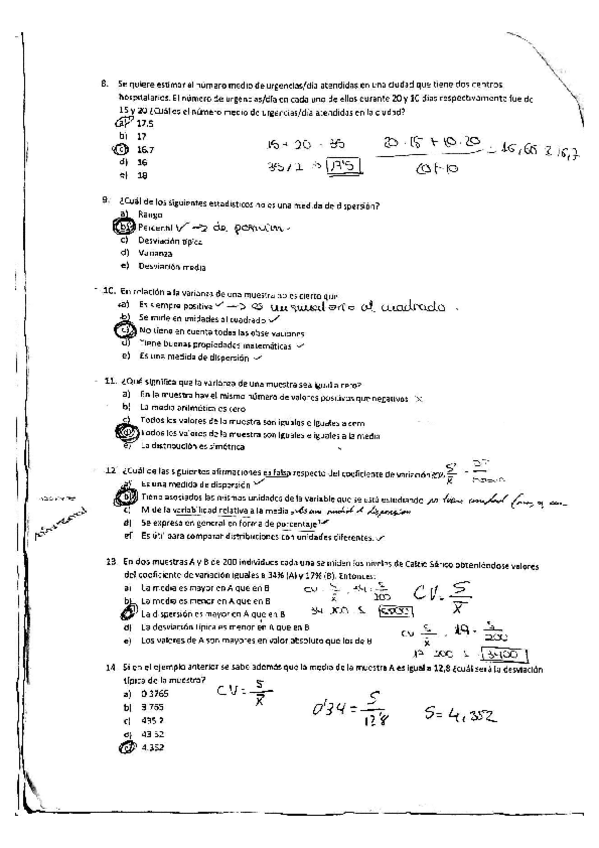 8. Se quiere estimar el número medio de urgencias/día atendidas en una ciudad que tiene dos centros
hospitalarios. El número de urgencias/día en cada uno de ellos durante 20 y 10 días respectivamente fue de
15 y 20 ¿Cuál es el número medio de urgencias/día atendidas en la ciudad?
a) 17.5
b) 17
c) 16.7
d) 16
e) 18
15 + 20 = 35
35/2 = 17'5
20 · 15 + 10 · 20
20+10
= 16,66 ≈ 16,7
9. ¿Cuál de los siguientes estadísticos no es una medida de dispersión?
a) Rango
b) Percentil ✓ → de posición.
c) Desviación típica
d) Varianza
e) Desviación media
10. En relación a la varianza de una muestra no es cierto que
a) Es siempre positiva ✓ → es un sumatorio al cuadrado.
b) Se mide en unidades al cuadrado ✓
c) No tiene en cuenta todas las observaciones
d) Tiene buenas propiedades matemáticas ✓
e) Es una medida de dispersión ✓
11. ¿Qué significa que la varianza de una muestra sea igual a cero?
a) En la muestra hay el mismo número de valores positivos que negativos x
b) La media aritmética es cero
c) Todos los valores de la muestra son iguales e iguales a cero
d) Todos los valores de la muestra son iguales e iguales a la media
e) La distribución es simétrica
12. ¿Cuál de las siguientes afirmaciones es falsa respecto del coeficiente de variación? CV = S/x̄
a) Es una medida de dispersión ✓
b) Tiene asociados las mismas unidades de la variable que se está estudiando no tiene
c) Mide la variabilidad relativa a la media
d) Se expresa en general en forma de porcentaje ✓
e) Es útil para comparar distribuciones con unidades diferentes. ✓
adimensional
13. En dos muestras A y B de 200 individuos cada una se miden los niveles de Calcio Sérico obteniéndose valores
del coeficiente de variación iguales a 34% (A) y 17% (B). Entonces:
a) La media es mayor en A que en B
b) La media es menor en A que en B
c) La dispersión es mayor en A que en B
d) La desviación típica es menor en A que en B
e) Los valores de A son mayores en valor absoluto que los de B
CV = S/x̄
14 Si en el ejemplo anterior se sabe además que la media de la muestra A es igual a 12,8 ¿cuál será la desviación
típica de la muestra?
a) 0.3765
b) 3.765
c) 435.2
d) 43.52
e) 4.352
CV = S/x̄
0'34 = S/12'8
S = 4,352